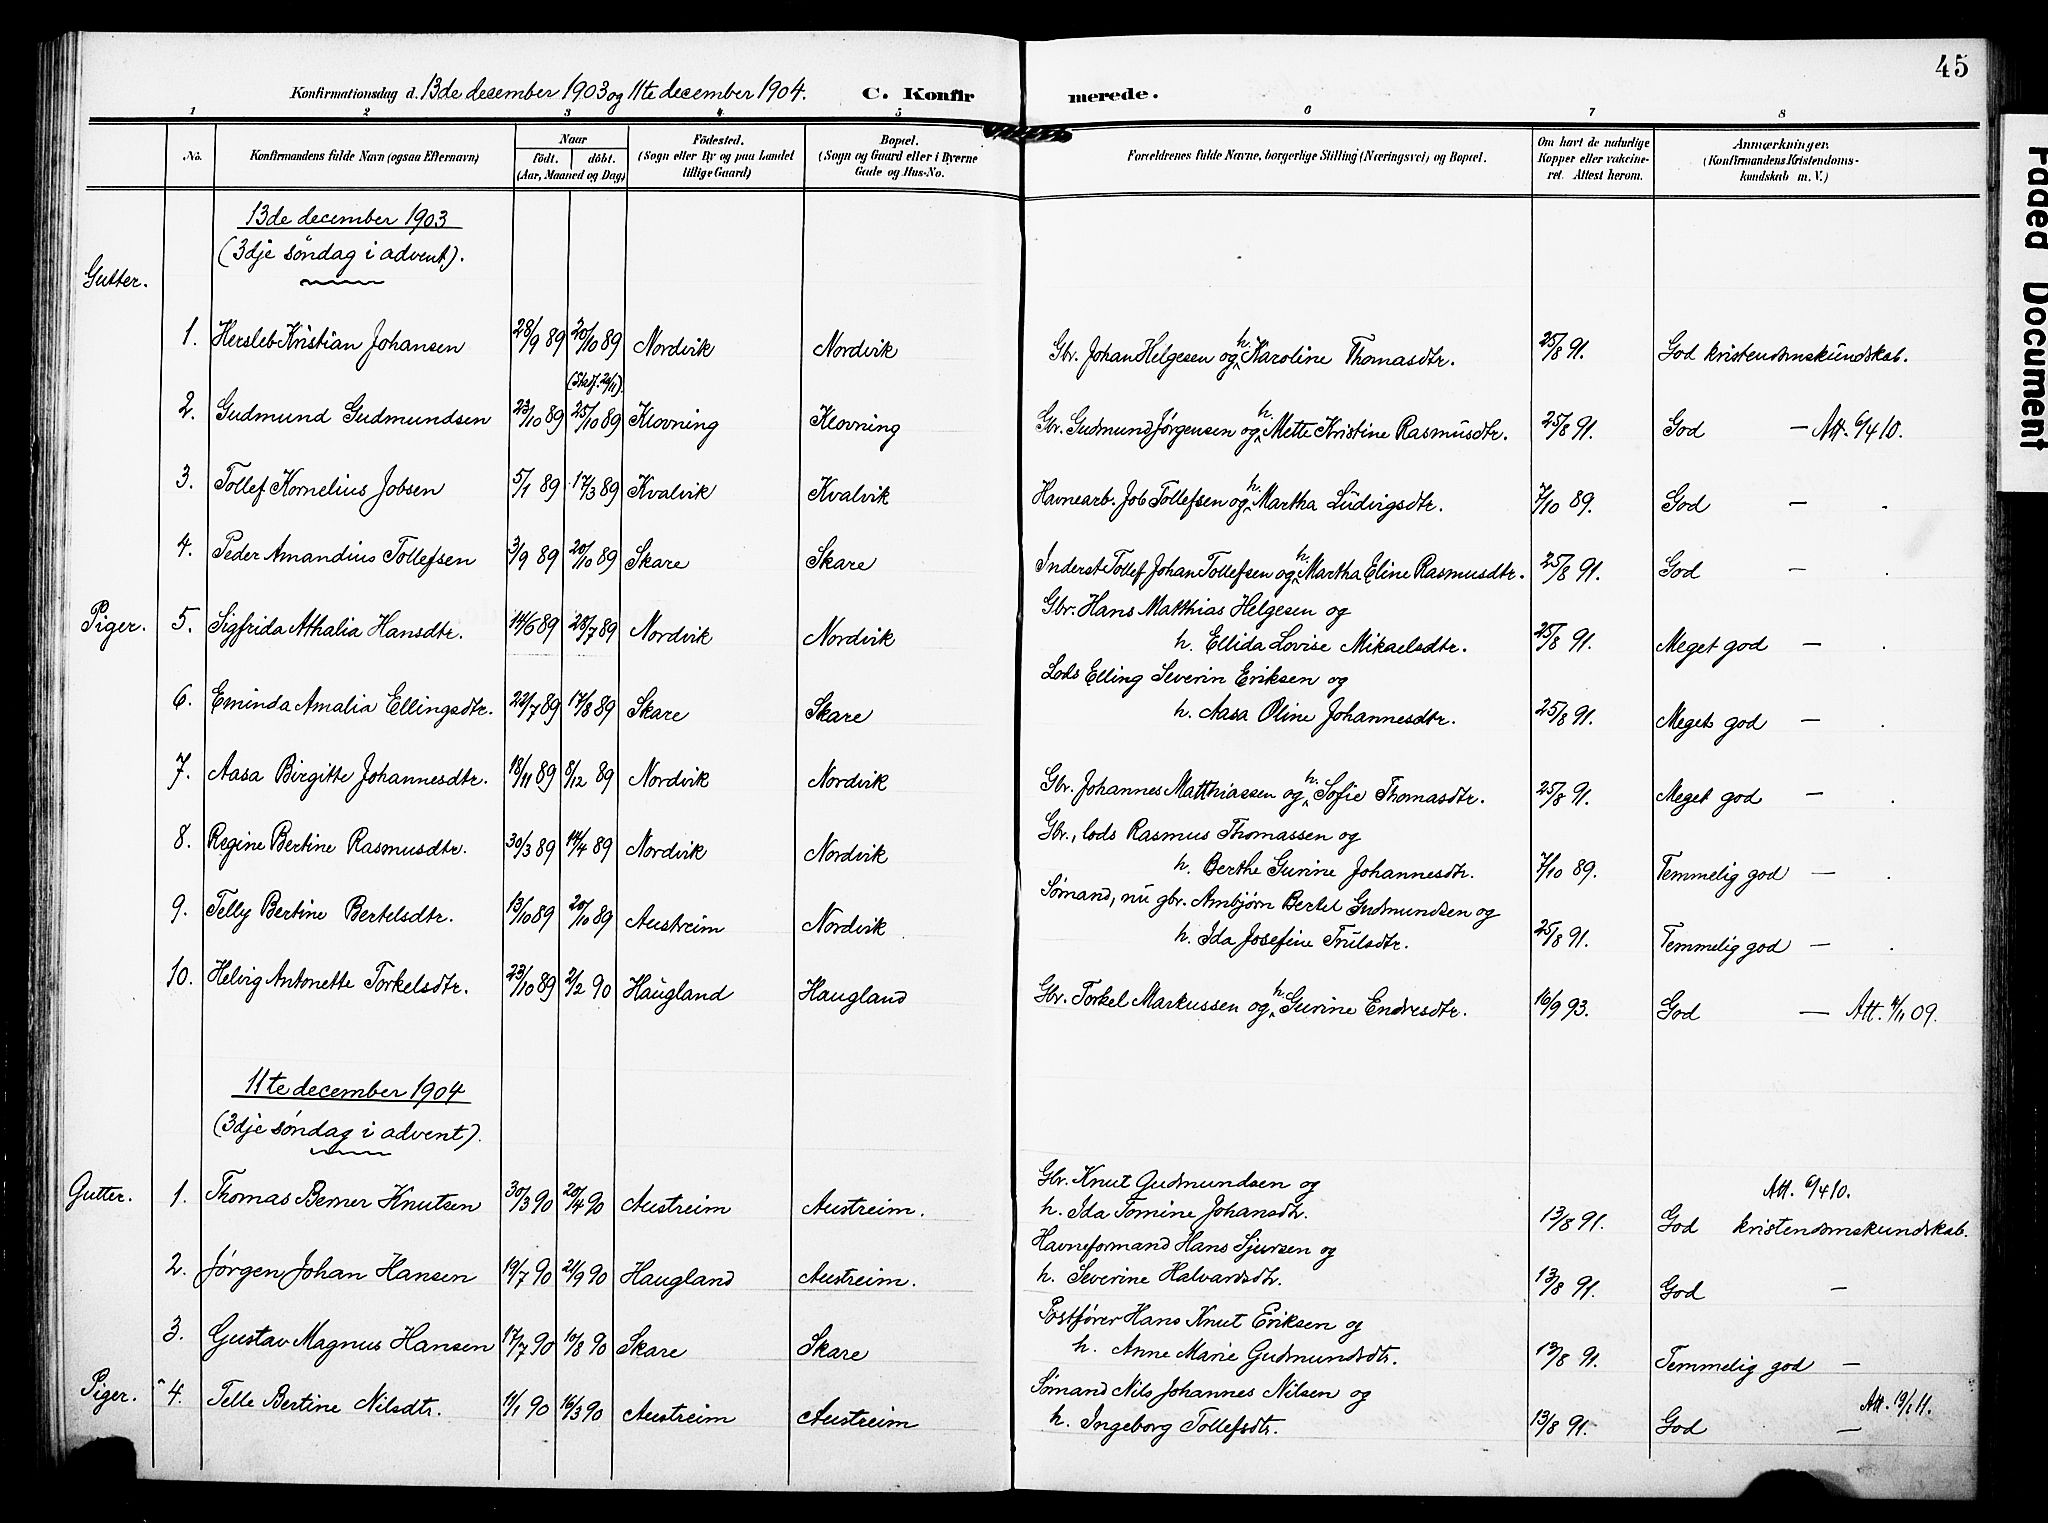 45
Konfirmationsdag d. 13de desember 1903 og 11te december 1904. C. Konfirmerede.
1 2 3 4 5 6 7 8
No. Konfirmandens fulde Navn (ogsaa Efternavn) Naar født. døbt. (Aar, Maaned og Dag) Födested. (Sogn eller By og paa Landet tillige Gaard) Bopæl. (Sogn og Gaard eller i Byerne Gade og Hus-No. Forældrenes fulde Navne, borgerlige Stilling (Næringsvei) og Bopæl. Om havt de naturlige Kopper eller vakcineret. Attest herom. Anmærkninger. (Konfirmandens Kristendomskundskab m. V.)
13de december 1903
(3dje søndag i advent).
Gutter.
1. Hersleb Kristian Johansen 28/9 89 20/10 89 Nordvik Nordvik Gbr. Johan Helgesen og h. Karoline Thomasdtr. 25/8 91. God kristendomskundskab.
2. Gudmund Gudmundsen 23/10 89 25/10 89 Klovning Klovning Gbr. Gudmund Jørgensen og h. Mette Kristine Rasmusdtr. 25/8 91. God — Att. 6/4 10.
3. Tollef Kornelius Jobsen 5/1 89 17/3 89 Kvalvik Kvalvik Havnearb. Job Tollefsen og h. Martha Ludvigsdtr. 7/10 89. God —
4. Peder Amandius Tollefsen 3/9 89 20/10 89 Skare Skare Inderst Tollef Johan Tollefsen og h. Martha Eline Rasmusdtr. 25/8 91. God —
Piger. 5. Sigfrida Athalia Hansdtr. 14/6 89 28/7 89 Nordvik Nordvik Gbr. Hans Matthias Helgesen og
h. Ellida Lovise Mikaelsdtr. 25/8 91. Meget god —
6. Eminda Amalia Ellingsdtr. 22/7 89 17/8 89 Skare Skare Lods Elling Severin Eriksen og
h. Aasa Oline Johannesdtr. 25/8 91. Meget god —
7. Aasa Birgitte Johannesdtr. 18/11 89 8/12 89 Nordvik Nordvik Gbr. Johannes Matthiassen og h. Sofie Thomasdtr. 25/8 91. Meget god —
8. Regine Bertine Rasmusdtr. 30/3 89 14/4 89 Nordvik Nordvik Gbr., lods Rasmus Thomassen og
h. Berthe Gurine Johannesdtr. 7/10 89. Temmelig god —
9. Telly Bertine Bertelsdtr. 13/10 89 20/10 89 Austreim Nordvik Sømand, nu gbr. Ambjørn Bertel Gudmundsen og
h. Ida Josefine Trulsdtr. 25/8 91. Temmelig god —
10. Helvig Antonette Torkelsdtr. 23/10 89 2/2 90 Haugland Haugland Gbr. Torkel Markussen og h. Gurine Endresdtr. 16/9 93. God — Att. 4/11 09.
11te december 1904
(3dje søndag i advent).
Gutter. 1. Thomas Berner Knutsen 30/3 90 20/4 90 Austreim Austreim. Gbr. Knut Gudmundsen og
h. Ida Tomine Johansdtr. 13/8 91. God kristendomskundskab. Att. 6/4 10.
2. Jørgen Johan Hansen 19/7 90 21/9 90 Haugland Austreim. Havneformand Hans Sjursen og
h. Severine Halvardsdtr. 13/8 91. God —
3. Gustav Magnus Hansen 17/7 90 10/8 90 Skare Skare Postfører Hans Knut Eriksen og
h. Anne Marie Gudmundsdtr. 13/8 91. Temmelig god —
Piger. 4. Telle Bertine Nilsdtr. 11/1 90 16/3 90 Austreim Austreim Sømand Nils Johannes Nilsen og
h. Ingeborg Tollefsdtr. 13/8 91. God — Att. 19/1 11.
Faded Document